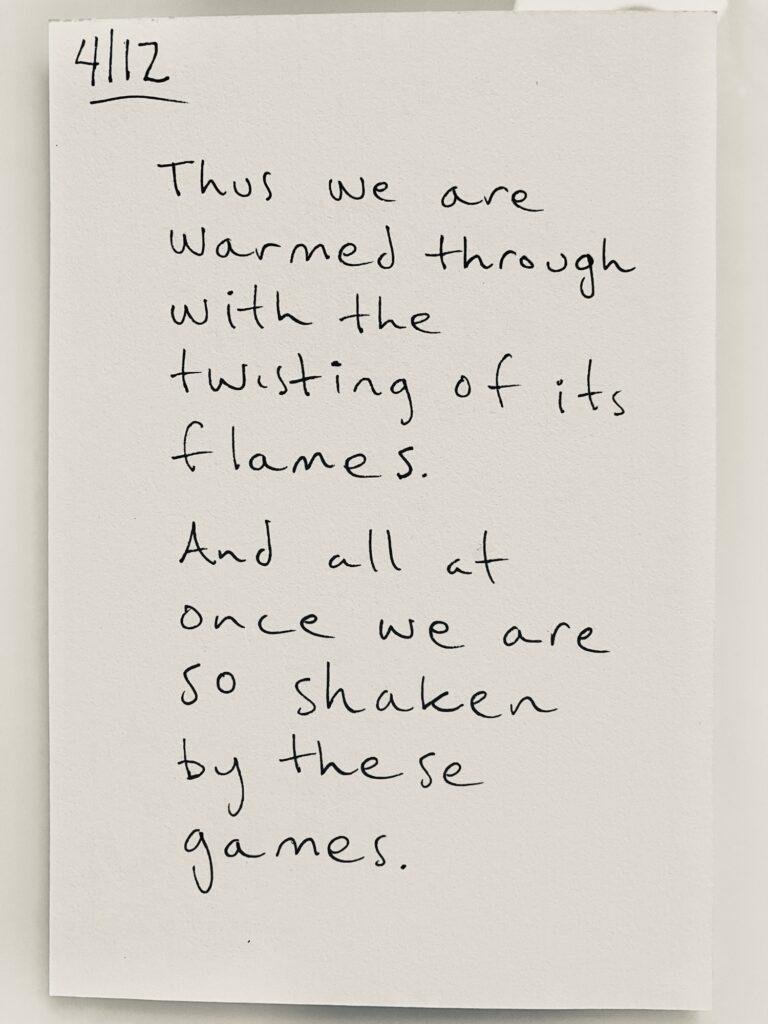 4/12
Thus we are
warmed through
with the
twisting of its
flames.
And all at
once we are
so shaken
by these
games.